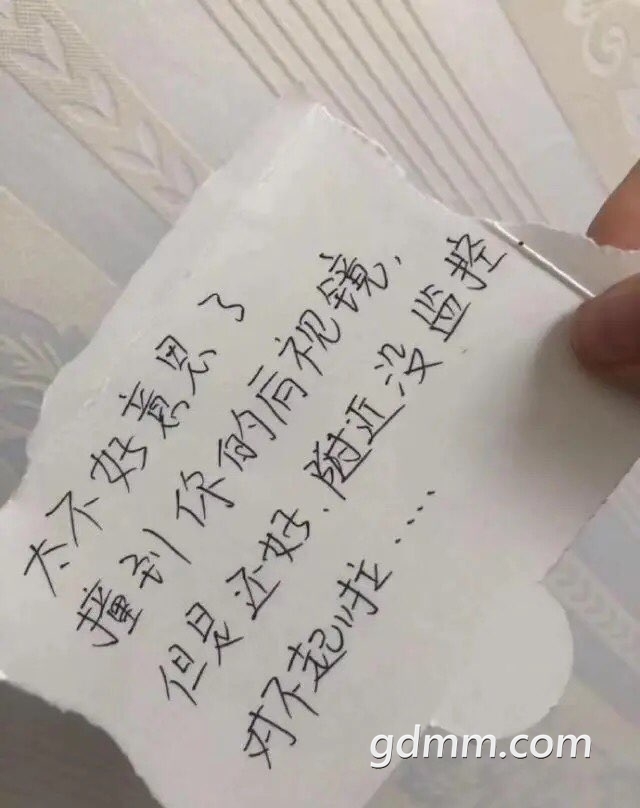 太不好意思了
撞到你的后视镜,
但是还好、附近没监控
对不起啦....
gdmm.com